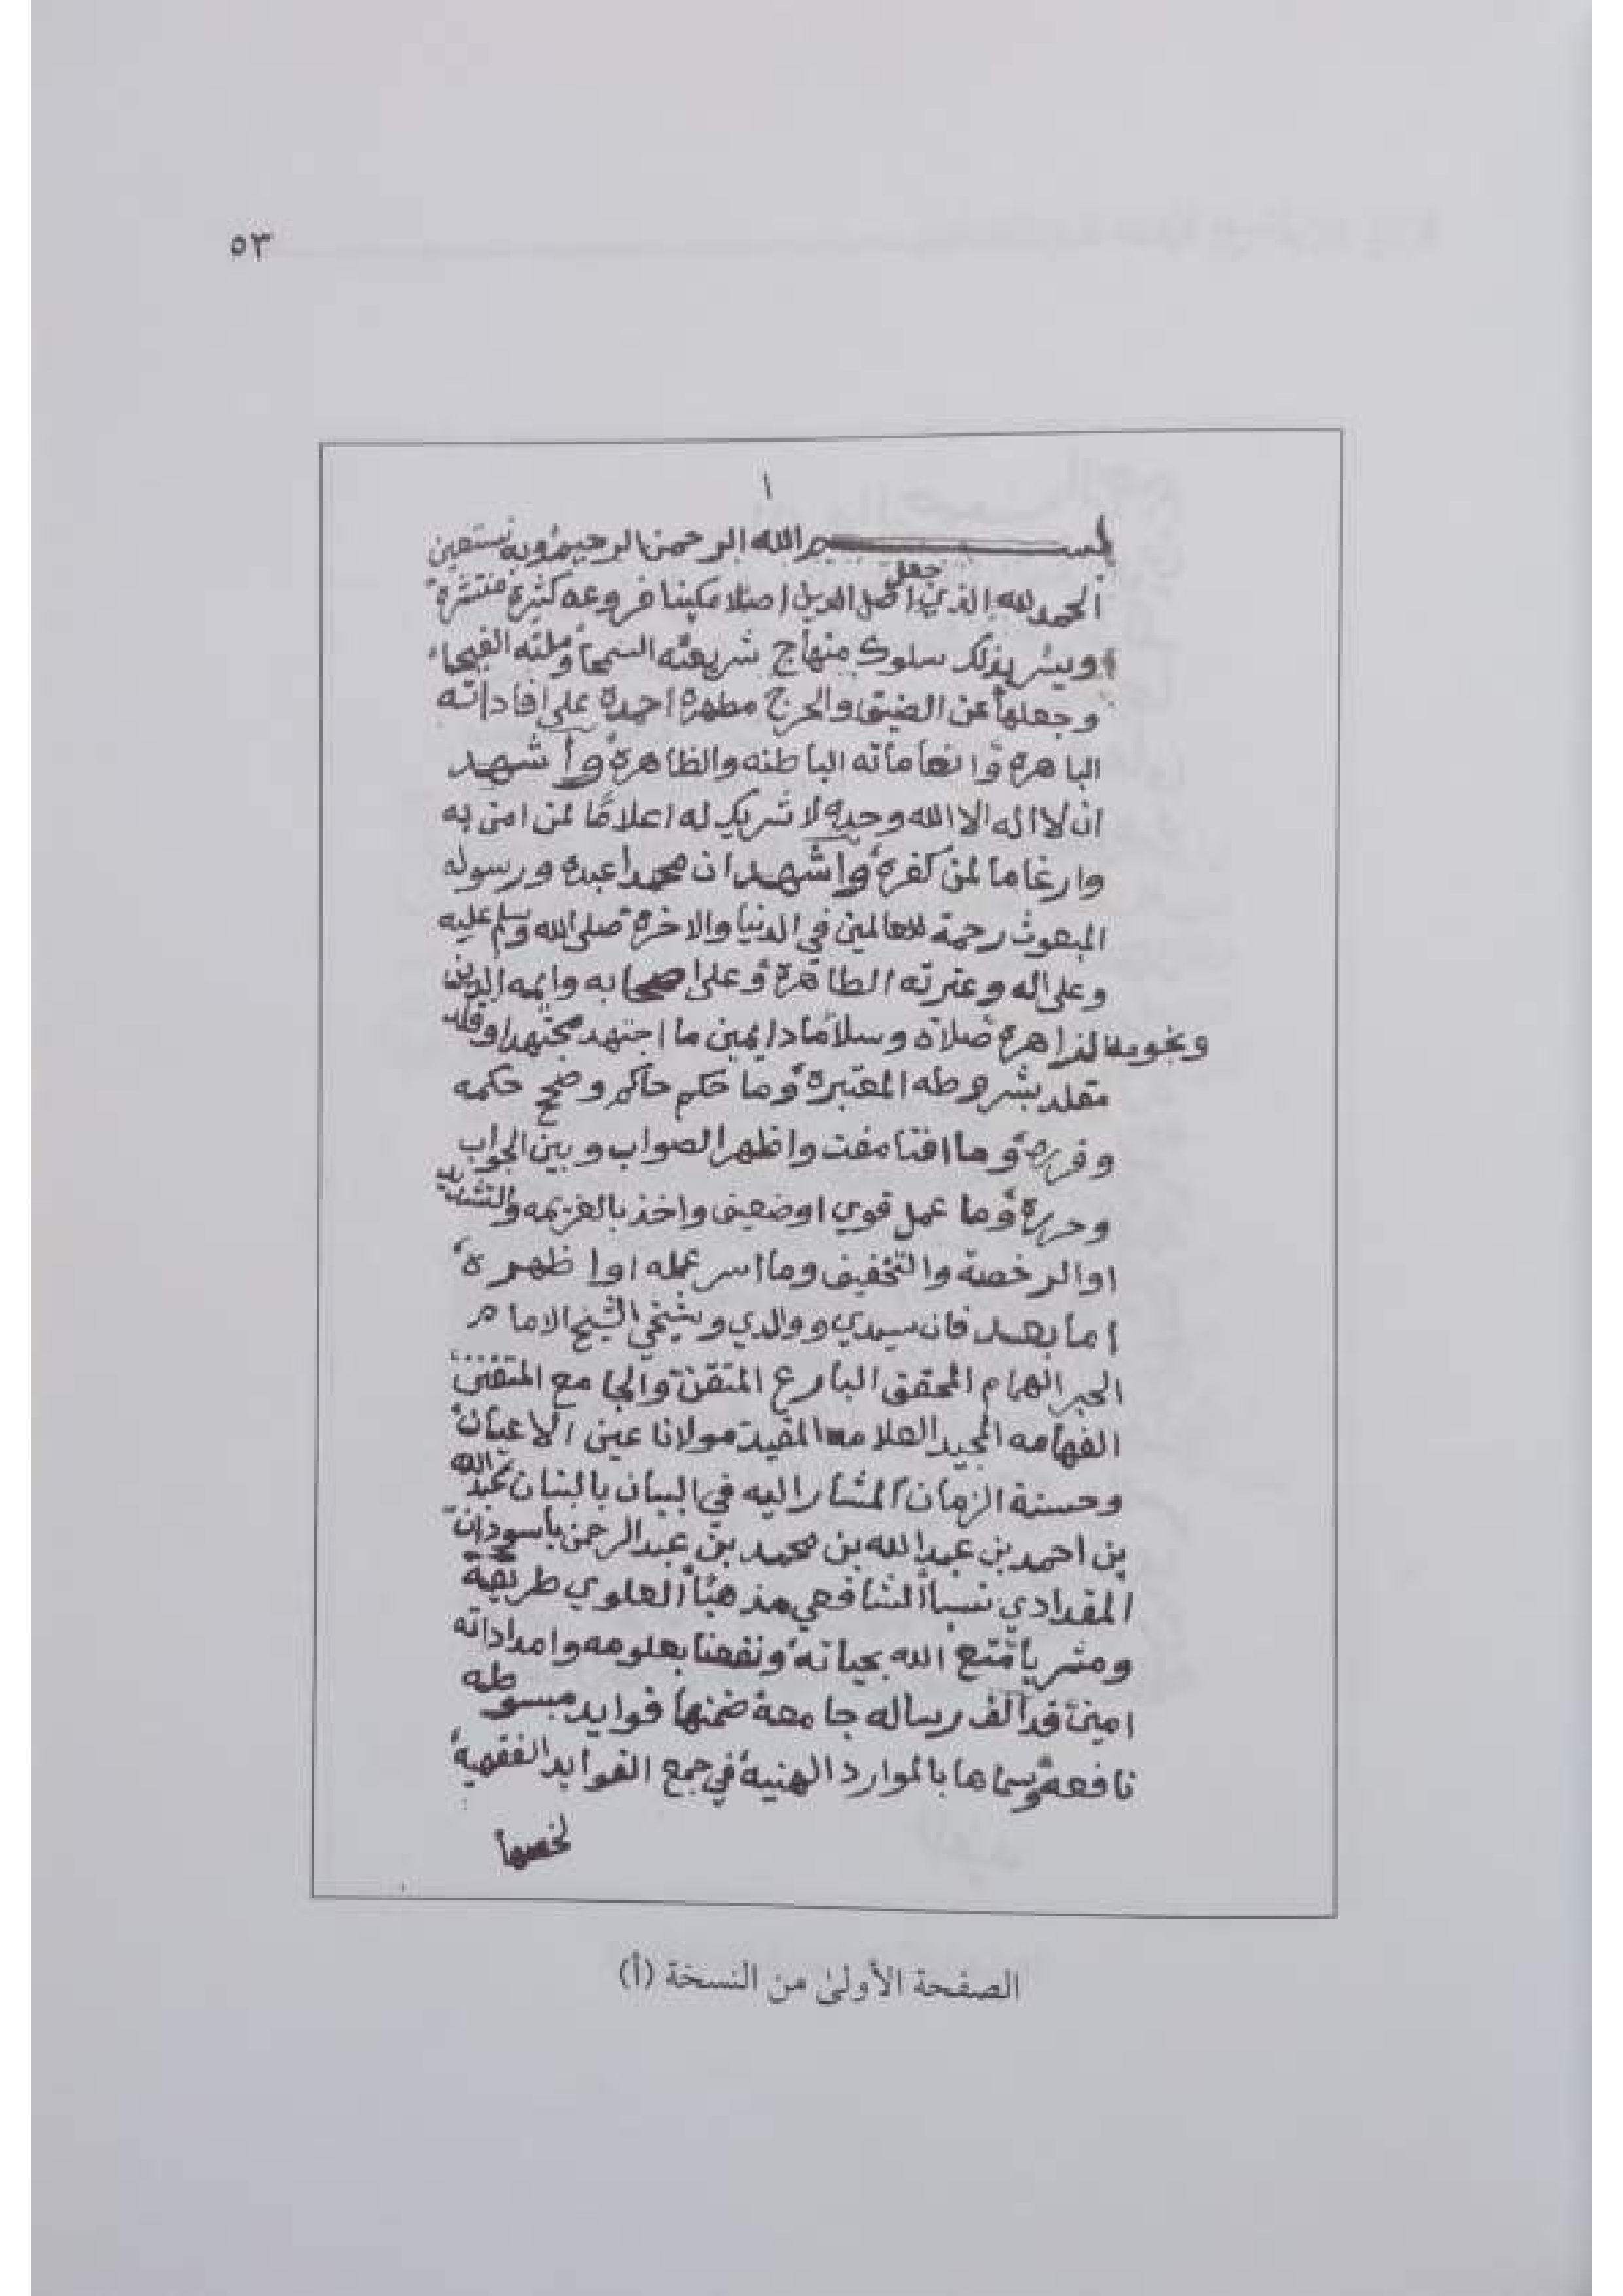 ٥٣
١
بسم الله الرحمن الرحيم وبه نستعين
الحمد لله الذي جعل اصل الدين اصلا مكينا فروعه كثيرة منتشرة
ويسر بذلك سلوك منهاج شريعته السمحا وملته الفيحاء
وجعلها عن الضيق والحرج مطهرة احمده على افاداته
الباهرة وانعاماته الباطنه والظاهرة وأشهد
ان لا اله الا الله وحده لا شريك له اعلامًا لمن امن به
وارغاما لمن كفره واشهد ان محمدا عبده ورسوله
المبعوث رحمة للعالمين في الدنيا والاخرة صلى الله وسلم عليه
وعلى اله وعترته الطاهرة وعلى اصحابه وايمه الدين
ونجومه الزاهرة صلاة وسلامًا دايمين ما اجتهد مجتهد او قلد
مقلد بشروطه المعتبرة وما حكم حاكم وصحح حكمه
وقرره وما افتا مفت واظهر الصواب وبين الجواب
وحرره وما عمل قوي او ضعيف واخذ بالعزيمه والتشديد
او الرخصة والتخفيف وما اسر عمله او اظهره
اما بعد فان سيدي ووالدي وشيخي الشيخ الامام
الحبر الهمام المحقق البارع المتقن والجامع المتفنن
الفهامه المجيد العلامه المفيد مولانا عين الاعيان
وحسنة الزمان المشار اليه في البيان بالبنان عبد الله
بن احمد بن عبد الله بن محمد بن عبد الرحمن باسودان
المقدادي نسبا الشافعي مذهبًا العلوي طريقة
ومشربا متع الله بحياته ونفعنا بعلومه وامداداته
امين قد الف رساله جامعة ضمنها فوايد مبسوطه
نافعة وسماها بالموارد الهنية في جمع الفوايد الفقهية
لخصها
الصفحة الأولىٰ من النسخة (أ)